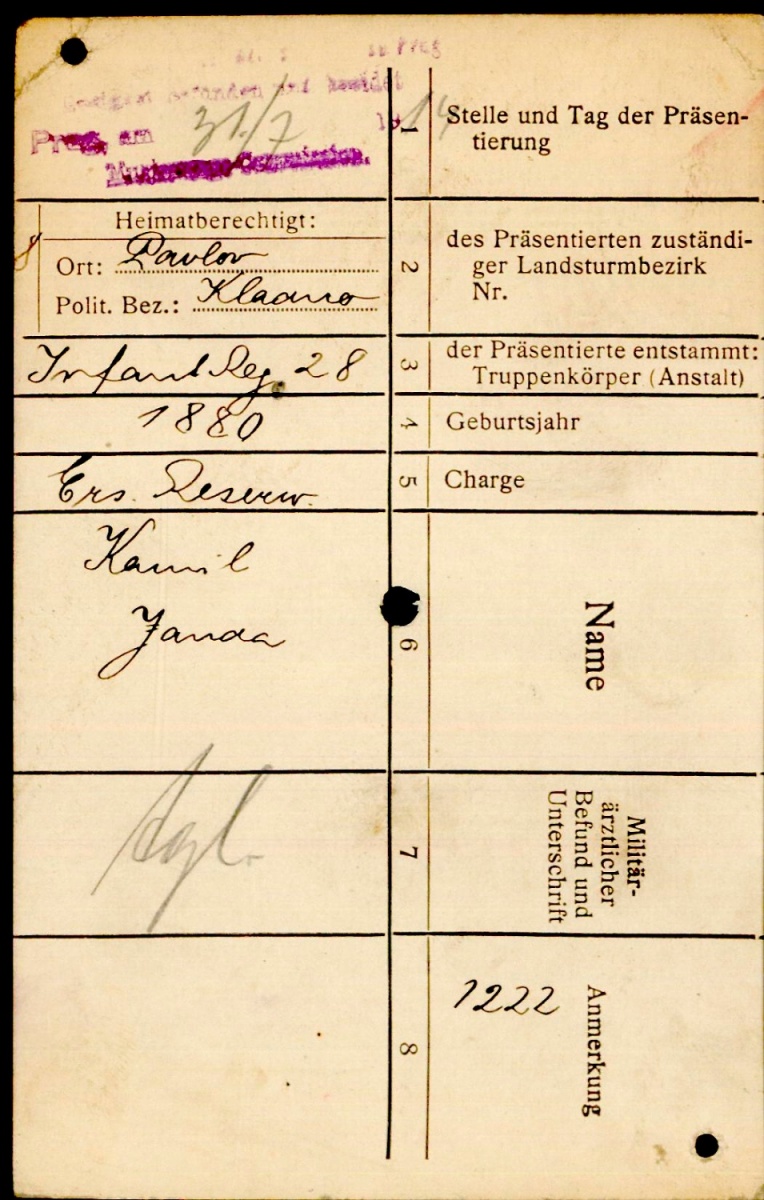 in Prag
Geeignet befunden und beeidet
Prag, am 31./7 1914
Musterungs-Commission.
1
Stelle und Tag der Präsen-
tierung
Heimatberechtigt:
8
Ort: Pavlov
Polit. Bez.: Kladno
2
des Präsentierten zuständi-
ger Landsturmbezirk
Nr.
Infant Reg. 28
3
der Präsentierte entstammt:
Truppenkörper (Anstalt)
1880
4
Geburtsjahr
Ers. Reserv.
5
Charge
Kamil
Janda
6
Name
tgl.
7
Militär-
ärztlicher
Befund und
Unterschrift
8
1222
Anmerkung